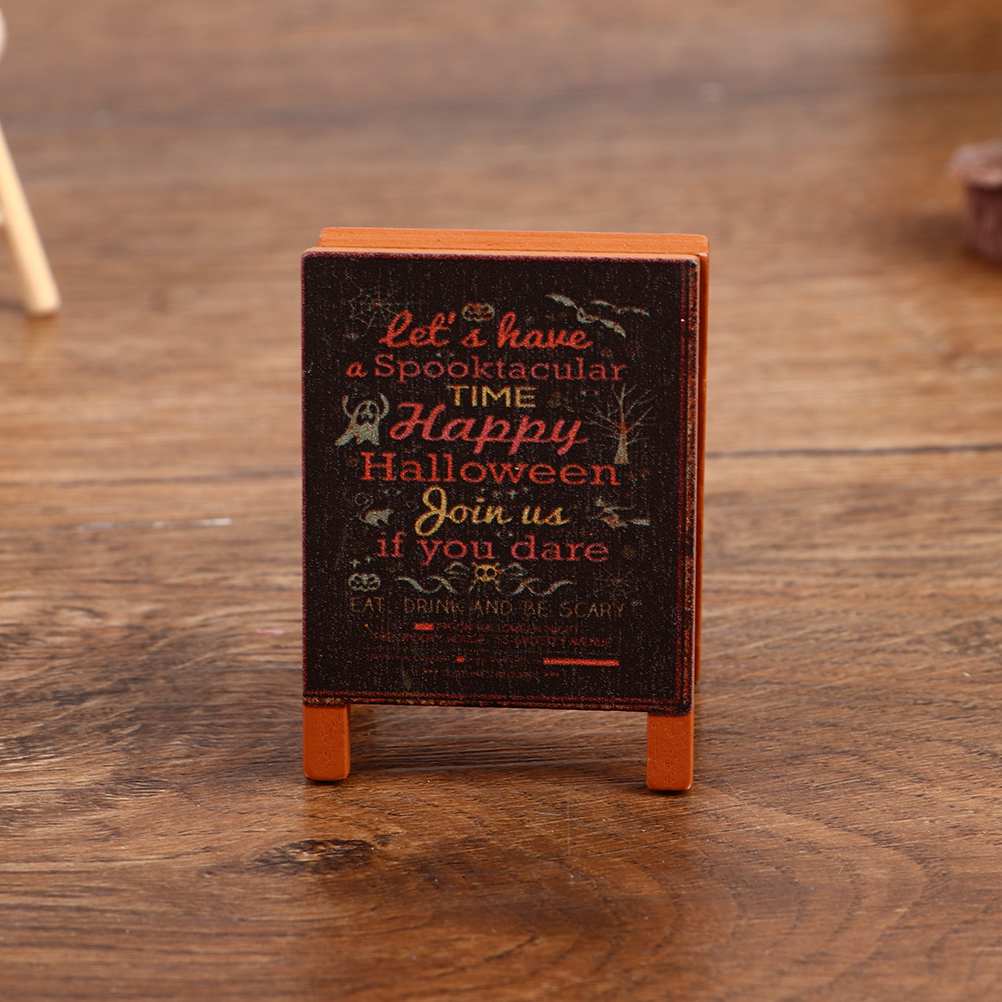 Let's have
a Spooktacular
TIME
Happy
Halloween
Join us
if you dare
EAT, DRINK AND BE SCARY